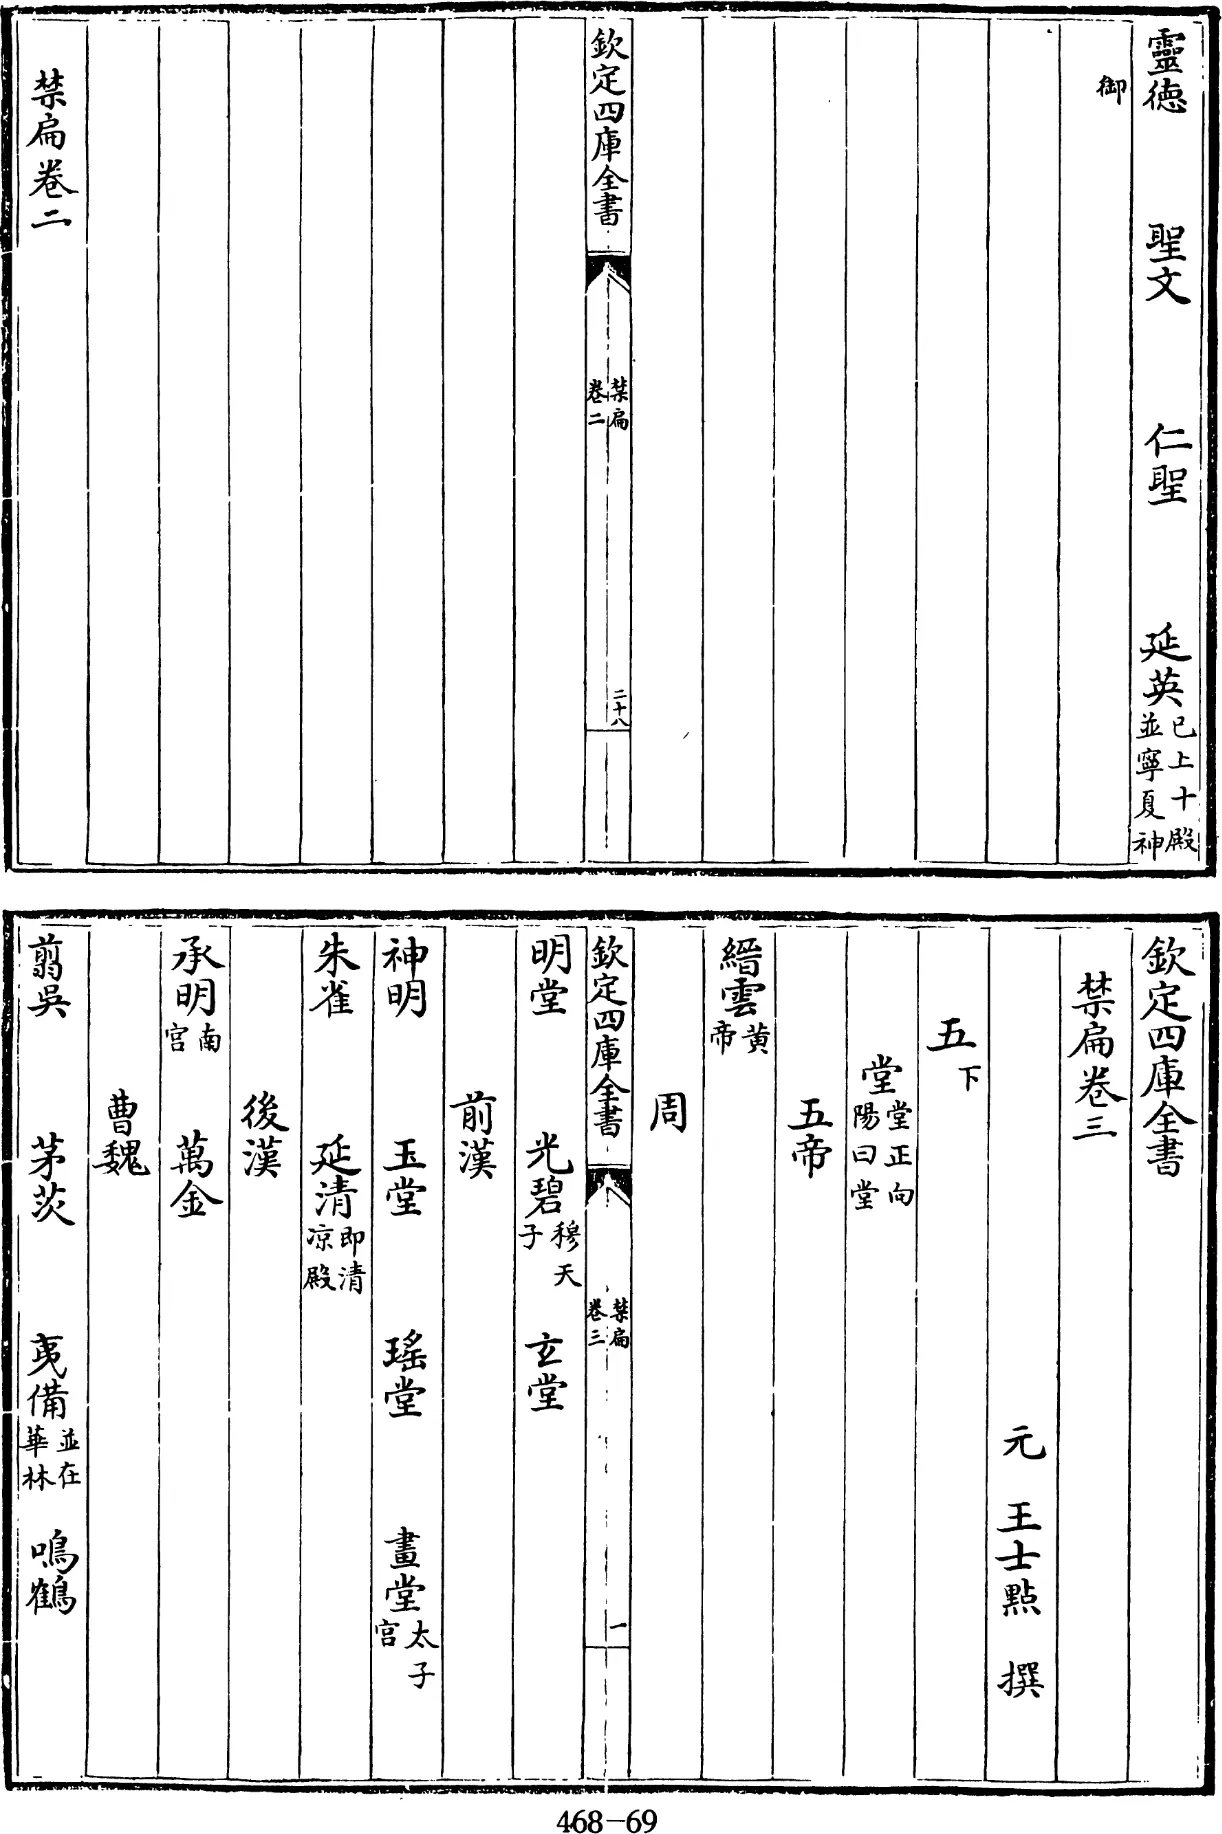 靈徳 聖文 仁聖 延英已上十殿並寧夏神
御
欽定四庫全書
禁扁
卷二
二十八
禁扁卷二
欽定四庫全書
禁扁卷三
元 王士點 撰
五下
堂堂正向陽曰堂
五帝
縉雲黄帝
周
欽定四庫全書
禁扁
卷三
一
明堂 光碧穆天子 玄堂
前漢
神明 玉堂 瑤堂 畫堂太子宫
朱雀 延清即清凉殿
後漢
承明南宫 萬金
曹魏
翦吳 茅茨 夷備並在華林 鳴鶴
468-69